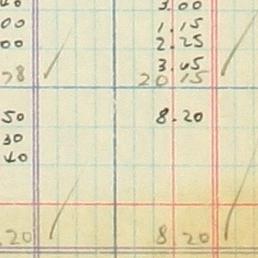 00 1.15
00 2.25
3.45
78 20 15
50 8.20
30
40
.20 8.20